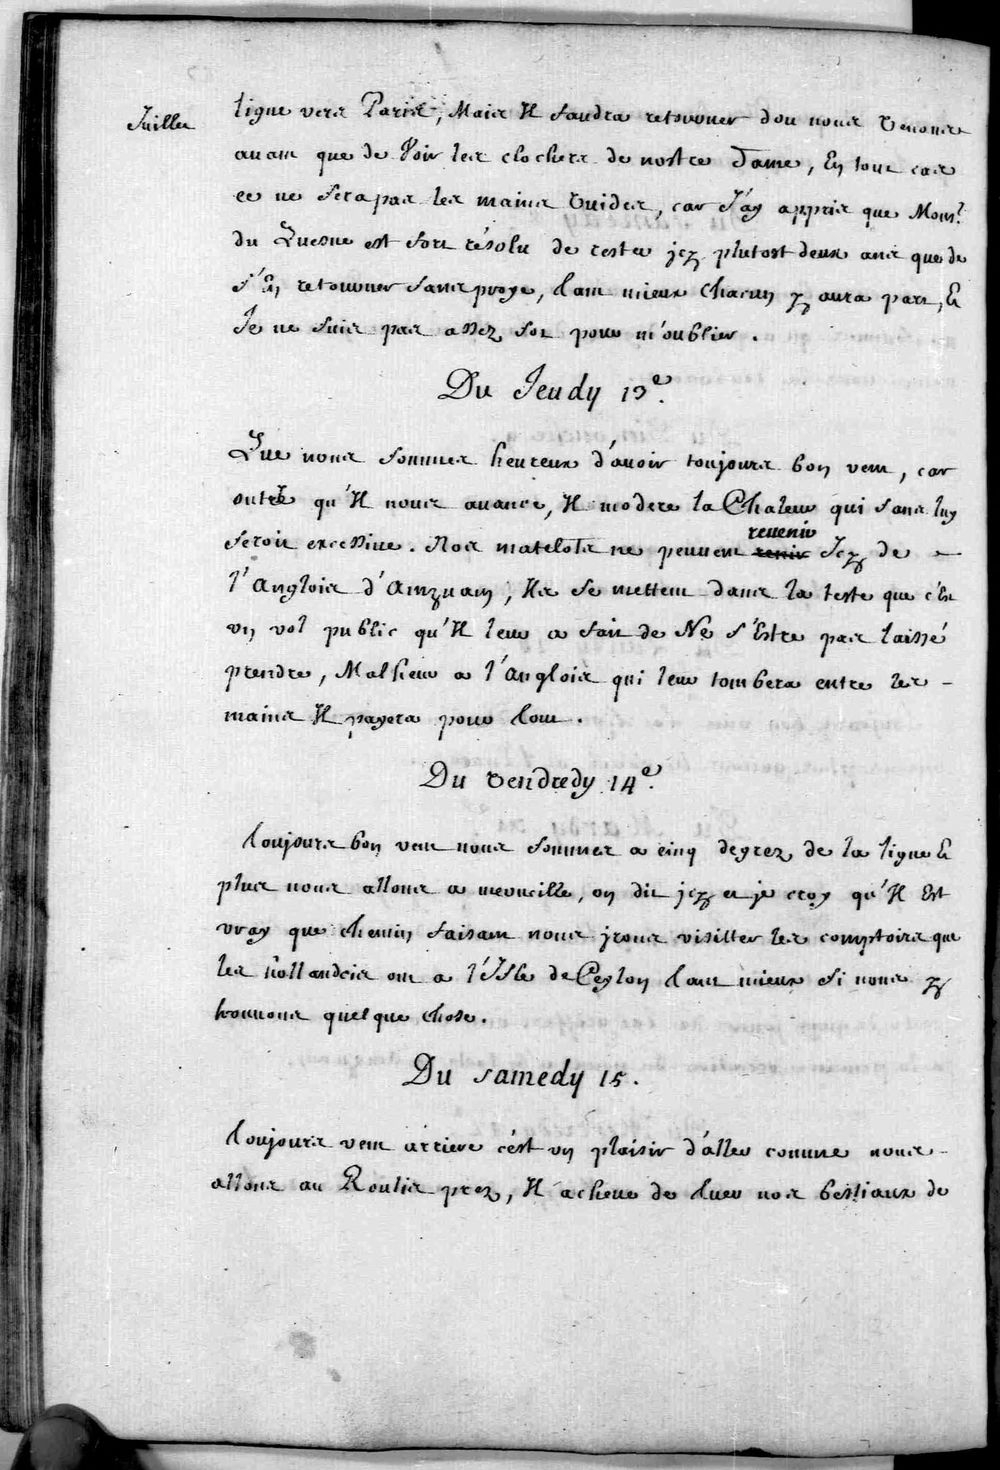 Juillet
ligne vers Paris, Mais Il faudra retourner dou nous Venons
auant que de Voir les clochers de nostre Dame, En tout cas
ce ne sera pas les mains Vuides, car J'ay appris que Monsr.
du Quesne est fort résolu de rester jcy plutost deux ans que de
s'En retourner sans proye, tant mieux chacun y aura part, Et
Je ne suis pas assez sot pour m'oublier.
Du Jeudy 13e.
Que nous sommes heureux d'auoir toujours bon vent, car
outre qu'Il nous auance, Il modere la Chaleur qui sans luy
seroit excessiue. Nos matelots ne peuuent venir reuenir Jcy de -
l'Anglois d'Amzuam, Ils se mettent dans la teste que c'Est
vn vol public qu'Il leur a fait de Ne s'Estre pas laissé
prendre, Malheur a l'Anglois qui leur tombera entre les -
mains Il payera pour tout.
Du Vendredy 14e.
toujours bon vent nous sommes a cinq degrez de la ligne Et
plus nous allons a merueille, on dit jcy et je croy qu'Il Est
vray que chemin faisant nous jrons visitter les comptoirs que
les hollandois ont a l'Isle de Ceylon tant mieux si nous y
trouuons quelque chose.
Du samedy 15.
toujours vent arriere c'est vn plaisir d'aller comme nous -
allons au Roulis prez, Il acheue de tuer nos bestiaux de